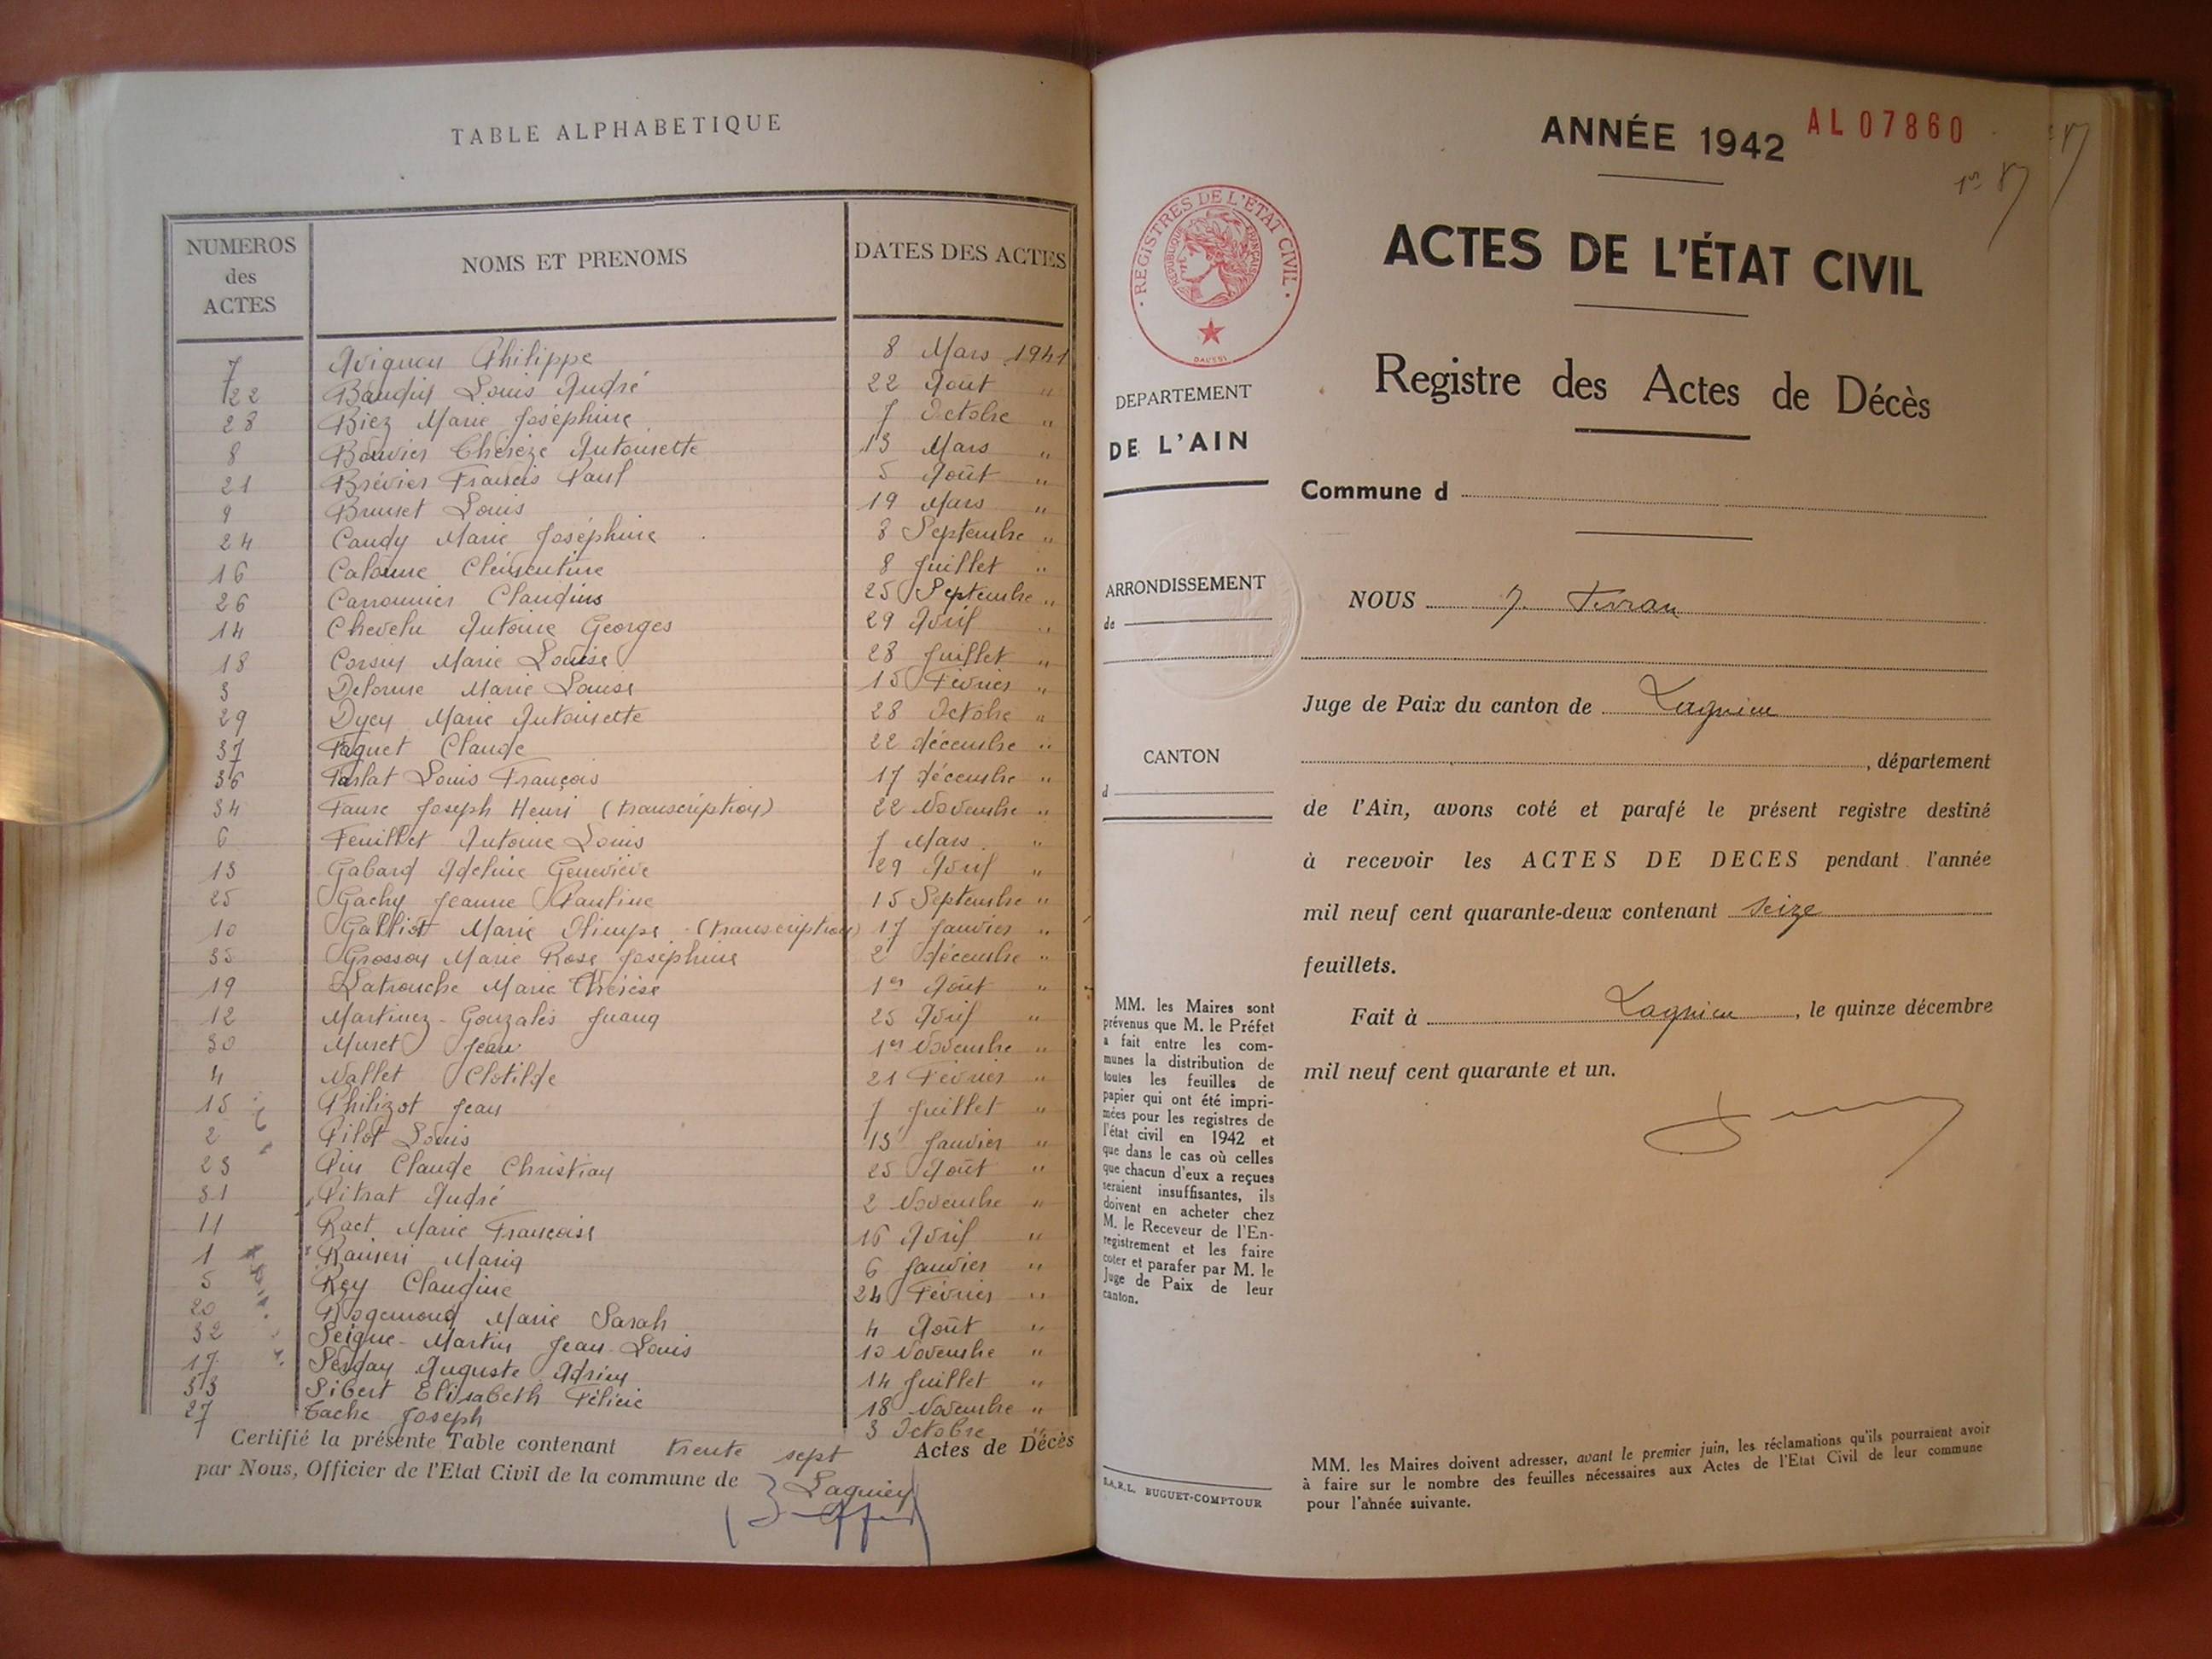 TABLE ALPHABETIQUE
NUMEROS des ACTES NOMS ET PRENOMS DATES DES ACTES
7 Avignon Philippe 8 Mars 1941
22 Baudin Louis André 22 Août "
28 Biez Marie Joséphine 7 Octobre "
8 Bouvier Thérèze Antoinette 13 Mars "
21 Brévier Francis Paul 5 Août "
9 Brunet Louis 19 Mars "
24 Candy Marie Joséphine 8 Septembre "
16 Calonne Clémentine 8 Juillet "
26 Carronnier Claudius 25 Septembre "
14 Chevelu Antoine Georges 29 Avril "
18 Corsin Marie Louise 28 Juillet "
3 Delorme Marie Louise 15 Février "
29 Dycy Marie Antoinette 28 Octobre "
37 Faquet Claude 22 décembre "
36 Farlat Louis François 17 décembre "
34 Faure Joseph Henri (transcription) 22 Novembre "
6 Feuillet Antoine Louis 7 Mars "
13 Gabard Adeline Geneviève 29 Avril "
25 Gachy Jeanne Pauline 15 Septembre "
10 Galliot Marie Olimpe (transcription) 17 Janvier "
35 Grosson Marie Rose Joséphine 2 décembre "
19 Latrouche Marie Thérèse 1er Août "
12 Martinez-Gonzalès Juana 25 Avril "
30 Muret Jean 1er Novembre "
4 Nallet Clotilde 21 Février "
15 Philizot Jean 7 Juillet "
2 Pilot Louis 13 Janvier "
23 Pin Claude Christian 25 Août "
31 Pitrat André 2 Novembre "
11 Ract Marie Françoise 16 Avril "
1 Raineri Maria 6 Janvier "
5 Rey Claudine 24 Février "
20 Rogemond Marie Sarah 4 Août "
32 Seigne-Martin Jean-Louis 10 Novembre "
17 Serday Auguste Adrien 14 Juillet "
33 Sibert Elisabeth Félicie 18 Novembre "
27 Tache Joseph 3 Octobre "
Certifié la présente Table contenant trente sept Actes de Décès
par Nous, Officier de l'Etat Civil de la commune de Lagnieu
ANNÉE 1942 AL 07860
1er
REGISTRES DE L'ETAT CIVIL
REPUBLIQUE FRANÇAISE
ACTES DE L'ÉTAT CIVIL
Registre des Actes de Décès
DEPARTEMENT
DE L'AIN
Commune d
ARRONDISSEMENT
de
NOUS J. Ferran
Juge de Paix du canton de Lagnieu
CANTON
d
, département
de l'Ain, avons coté et parafé le présent registre destiné
à recevoir les ACTES DE DECES pendant l'année
mil neuf cent quarante-deux contenant seize
feuillets.
Fait à Lagnieu, le quinze décembre
mil neuf cent quarante et un.
MM. les Maires sont
prévenus que M. le Préfet
a fait entre les com-
munes la distribution de
toutes les feuilles de
papier qui ont été impri-
mées pour les registres de
l'état civil en 1942 et
que dans le cas où celles
que chacun d'eux a reçues
seraient insuffisantes, ils
doivent en acheter chez
M. le Receveur de l'En-
registrement et les faire
coter et parafer par M. le
Juge de Paix de leur
canton.
S.A.R.L. BUGUET-COMPTOUR
MM. les Maires doivent adresser, avant le premier juin, les réclamations qu'ils pourraient avoir
à faire sur le nombre des feuilles nécessaires aux Actes de l'Etat Civil de leur commune
pour l'année suivante.